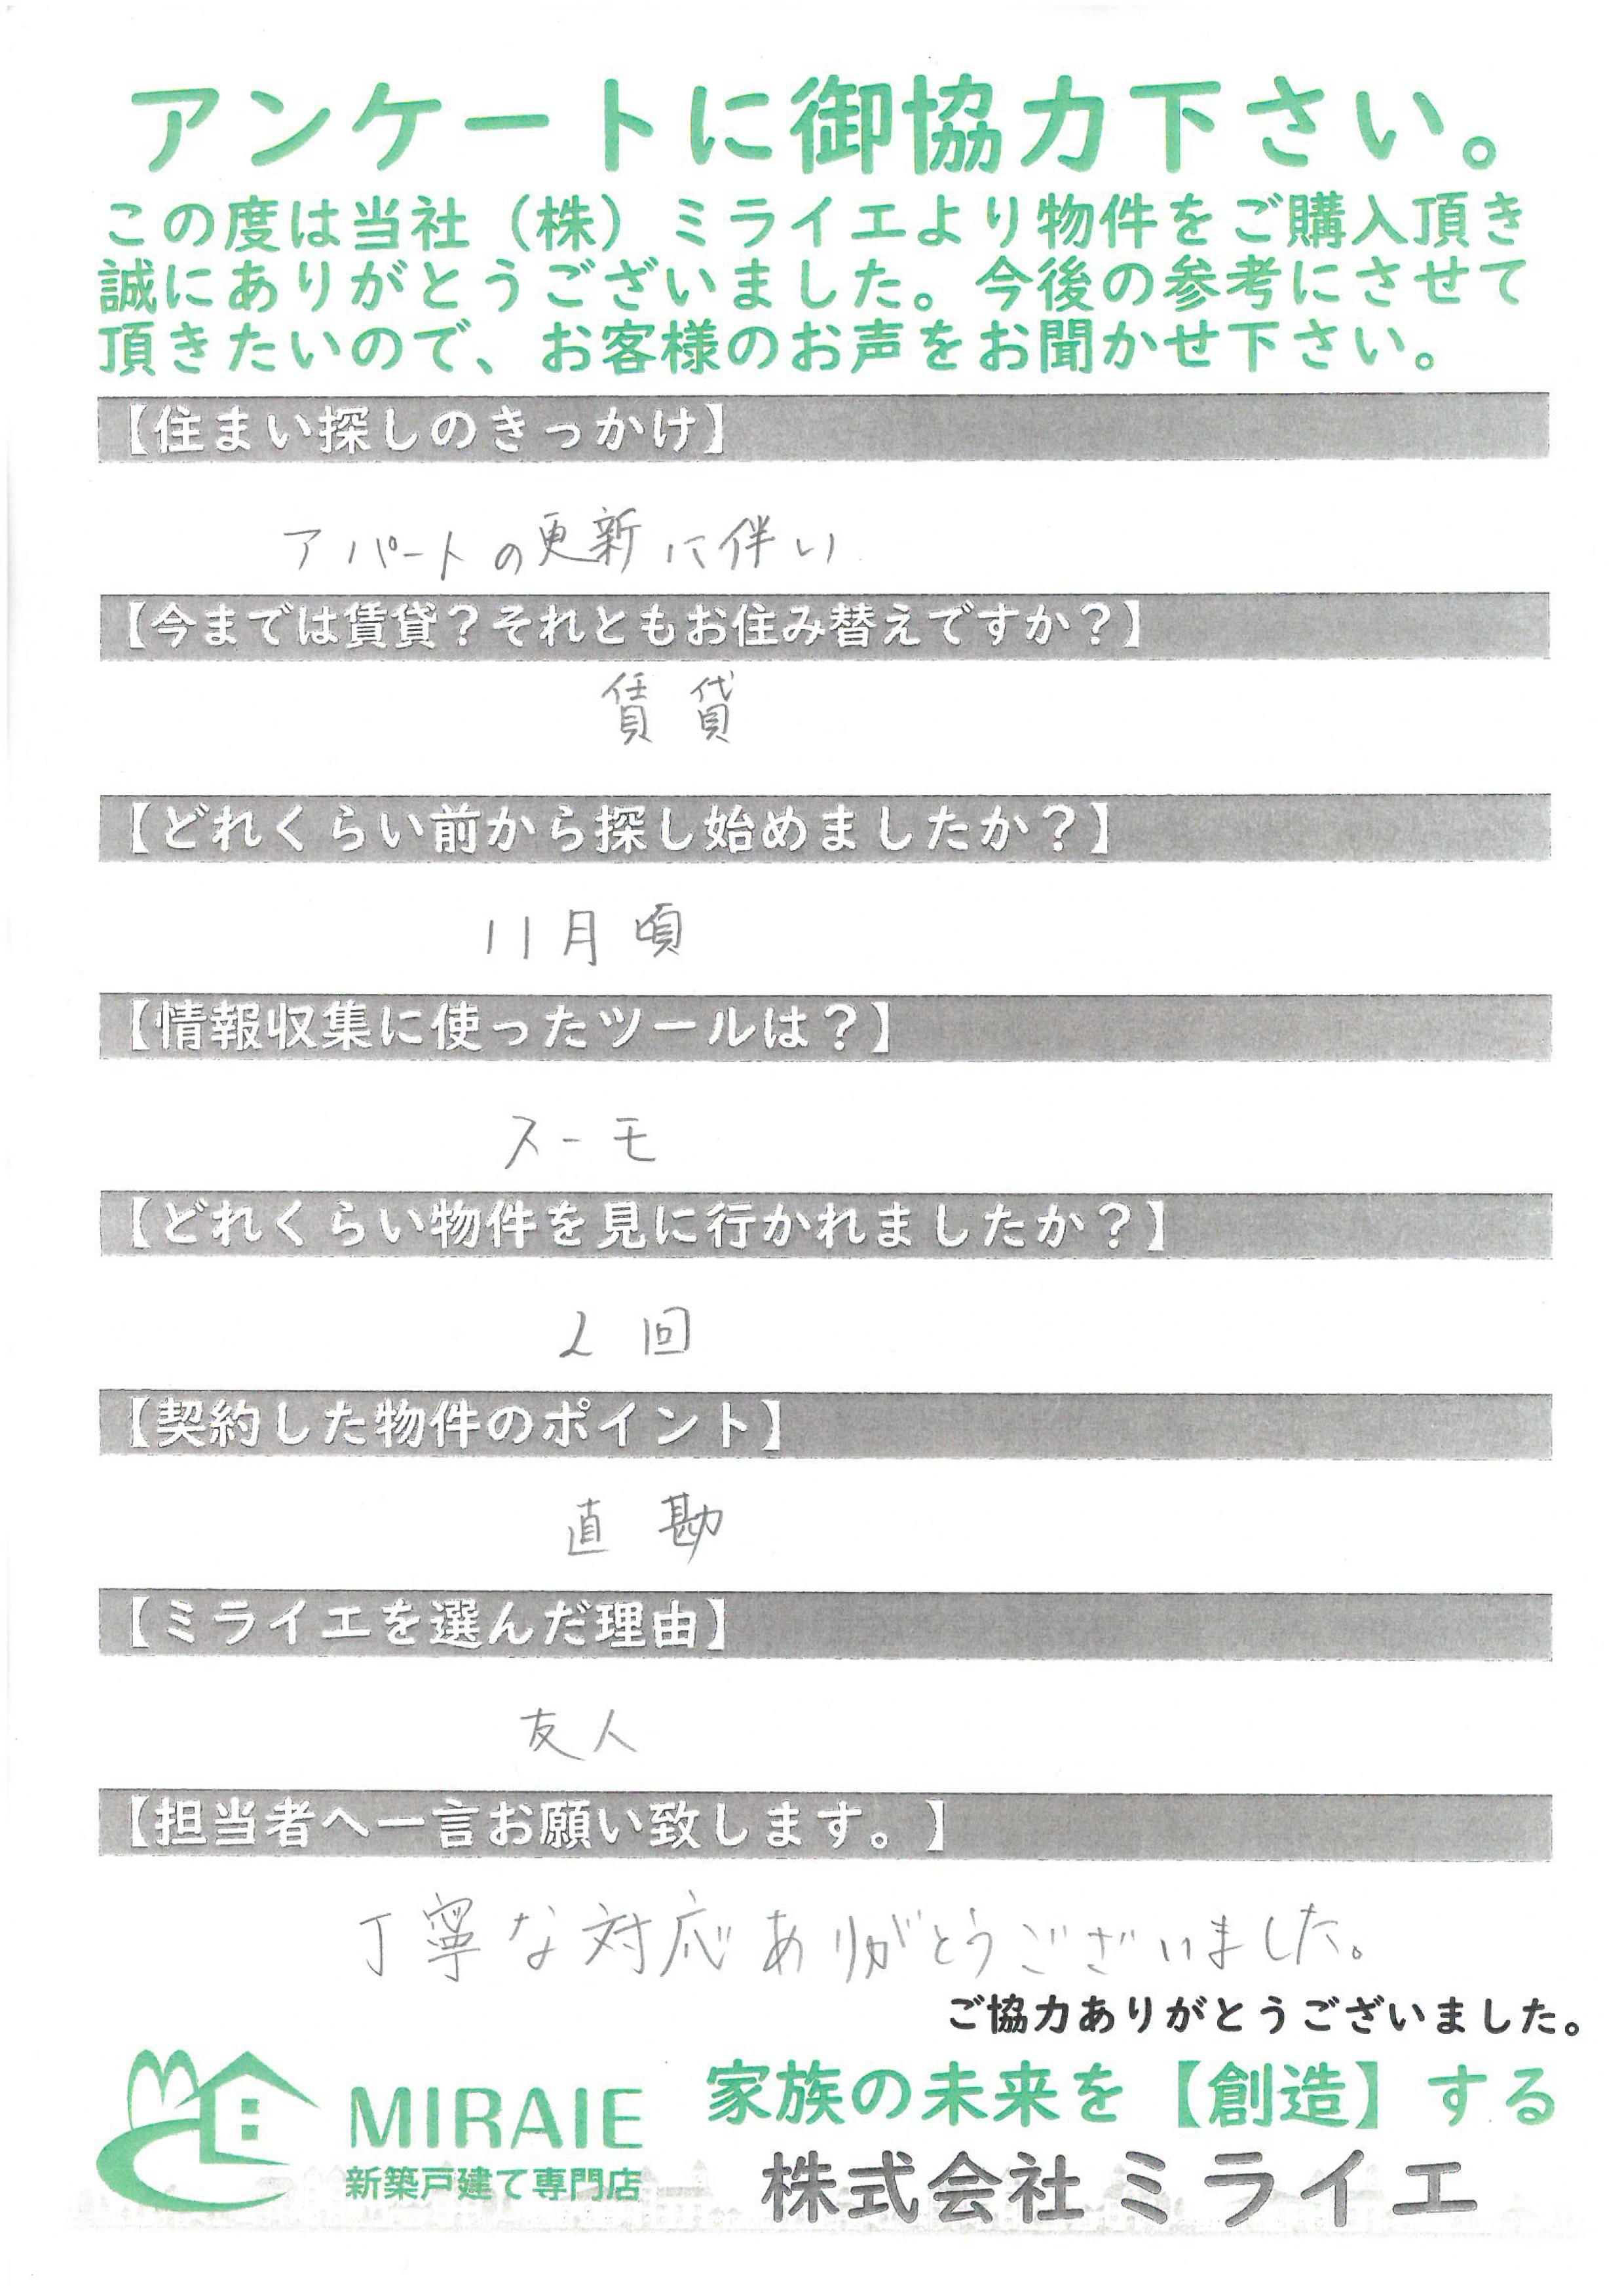 アンケートに御協力下さい。
この度は当社（株）ミライエより物件をご購入頂き
誠にありがとうございました。今後の参考にさせて
頂きたいので、お客様のお声をお聞かせ下さい。
【住まい探しのきっかけ】
アパートの更新に伴い
【今までは賃貸？それともお住み替えですか？】
賃貸
【どれくらい前から探し始めましたか？】
11月頃
【情報収集に使ったツールは？】
スーモ
【どれくらい物件を見に行かれましたか？】
2回
【契約した物件のポイント】
直勘
【ミライエを選んだ理由】
友人
【担当者へ一言お願い致します。】
丁寧な対応ありがとうございました。
ご協力ありがとうございました。
MIRAIE
新築戸建て専門店
家族の未来を【創造】する
株式会社ミライエ